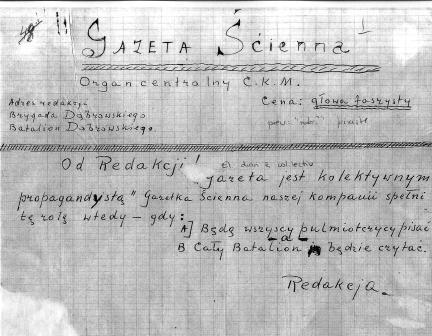 GAZETA Ścienna
Organ centralny C.K.M.
Adres redakcji
Brygada Dąbrowskiego
Batalion Dąbrowskiego.
Cena: głowa faszysty
Od Redakcji!
gazeta jest kolektywnym
propagandystą" Gazetka Ścienna naszej kompanii spełni
tę rolę wtedy – gdy:
A] Będą wszyscy pulmiotczycy pisać
B Cały Batalion będzie czytać.
Redakcja